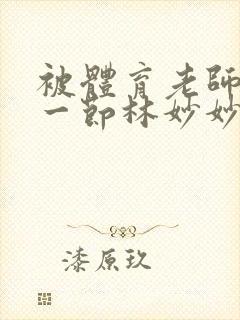 被體育老師
一節林妙妙
漆原玖